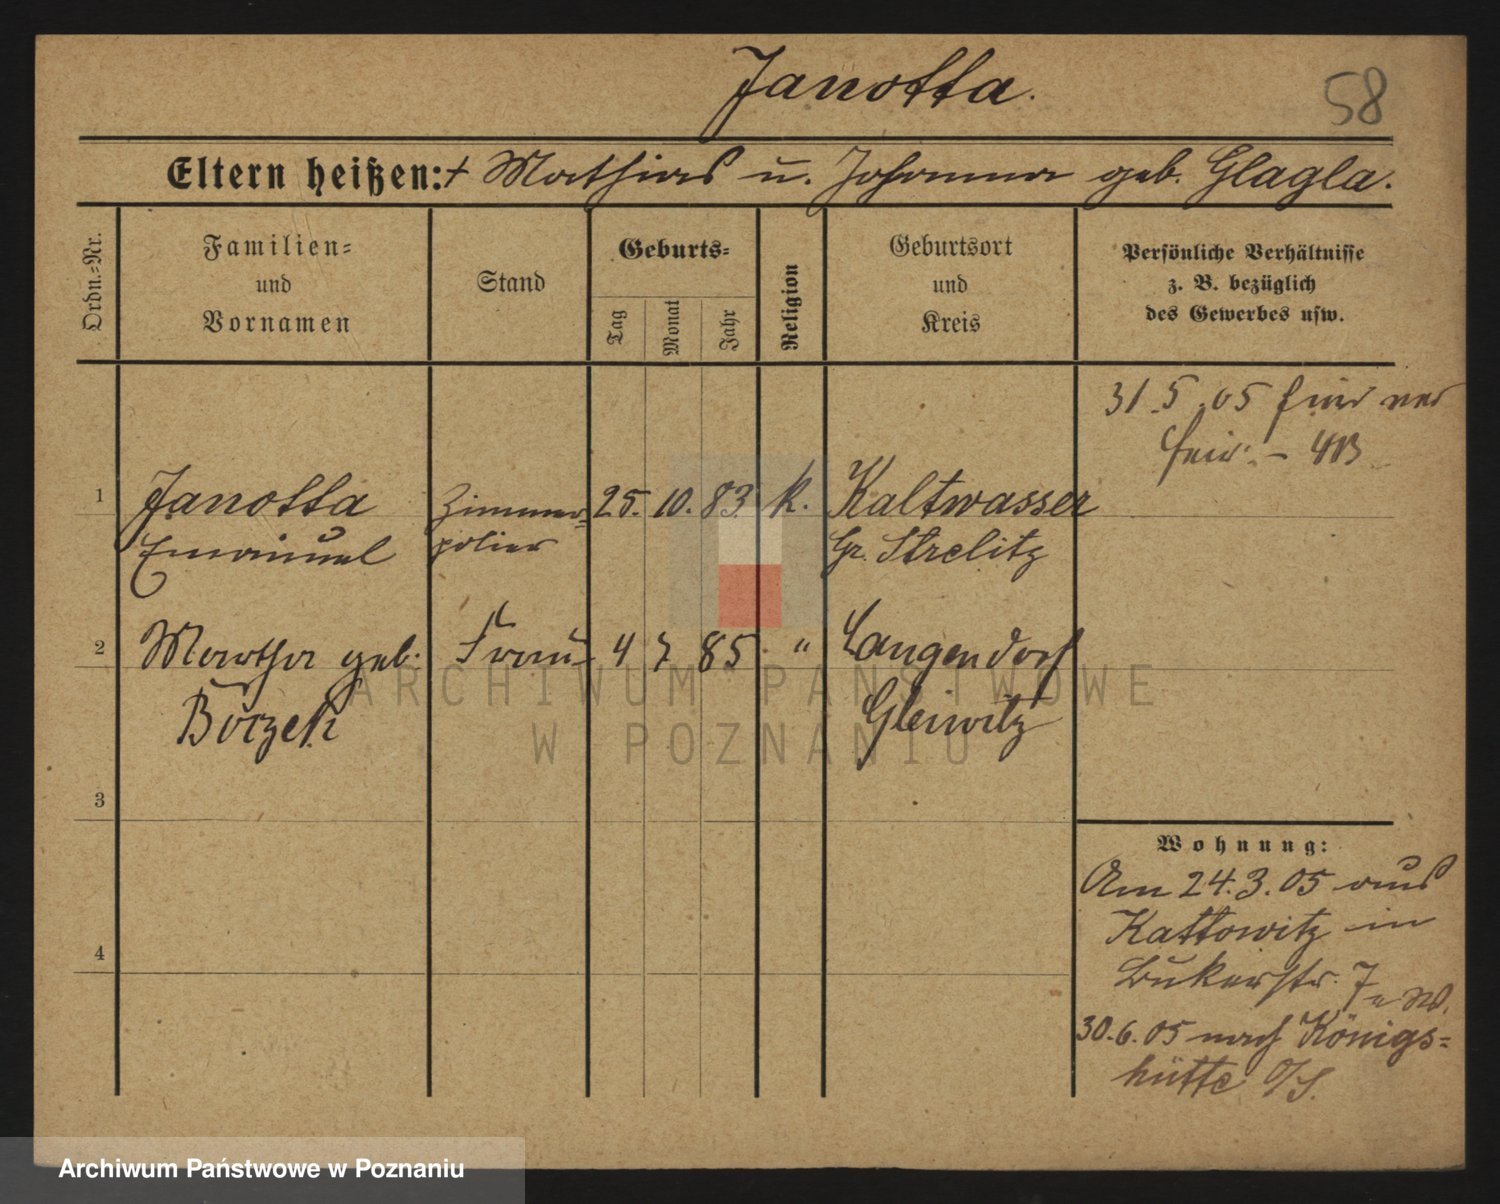 Janotta.
58
Eltern heißen: + Mathias u. Johanna geb. Glagla.
Ordn.-Nr.
Familien-
und
Vornamen
Stand
Geburts-
Tag
Monat
Jahr
Religion
Geburtsort
und
Kreis
Persönliche Verhältnisse
z. B. bezüglich
des Gewerbes usw.
31.5.05
1 Janotta Zimmer- 25. 10. 83 k. Kaltwasser
Emanuel polier Gr. Strelitz
2 Martha geb. Frau 4 7 85 " Langendorf
Borzek Gleiwitz
3
4
Wohnung:
Am 24.3.05 aus
Kattowitz in
Bukerstr. 7
30.6.05 nach Königs-
hütte O/S.
ARCHIWUM PAŃSTWOWE
W POZNANIU
Archiwum Państwowe w Poznaniu